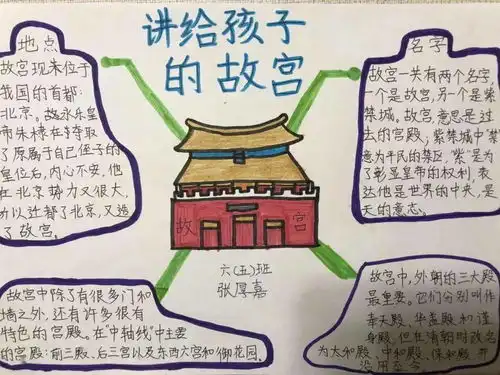 讲给孩子
的故宫
地点
故宫现未位于
我国的首都:
北京。故永乐皇
帝朱棣在夺取
了原属于自己侄子的
皇位后,内心不安,他
在北京势力又很大,
所以迁都了北京,又造
了故宫。
名字
故宫一共有两个名字
一个是故宫,另一个是紫
禁城。故宫意思是过
去的宫殿,紫禁城中"禁"
意为平民的禁区,"紫"是为
了彰显皇帝的权利,表
达他是世界的中央,是
天的意志。
故宫
六(五)班
张厚嘉
故宫中除了有很多门和
墙之外,还有许多很有
特色的宫殿。在"中轴线"中主要
的宫殿:前三殿、后三宫以及东西六宫和御花园.
故宫中,外朝的三大殿
最重要。它们分别叫作
奉天殿,华盖殿和谨
身殿,但在清朝时改名
为太和殿、中和殿、保和殿,并
沿用至今